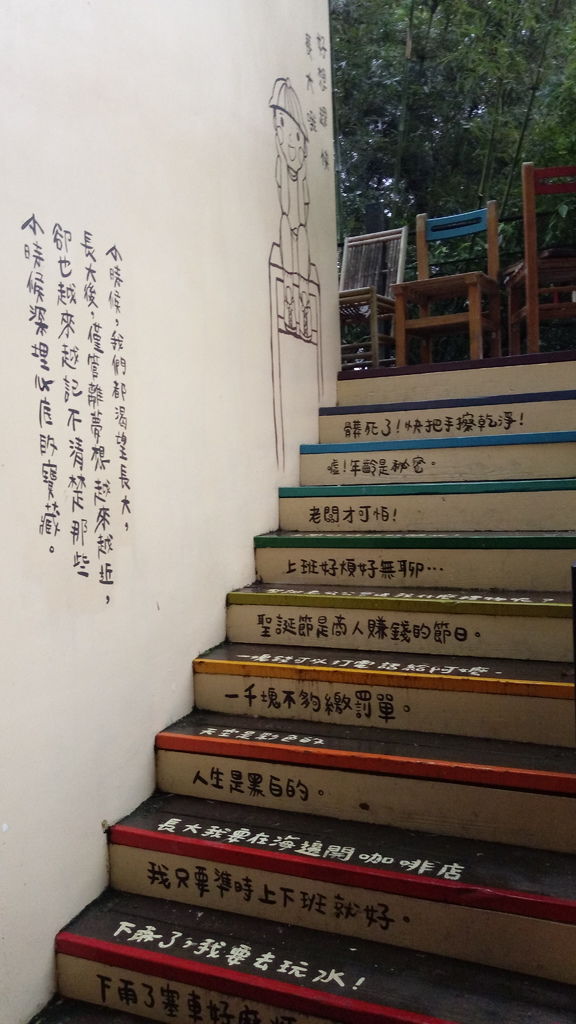 好想跟你
長大喔
小時候，我們都渴望長大，
長大後，僅管離夢想越來越近，
卻也越來越記不清楚那些
小時候深埋心底的寶藏。
髒死了！快把手擦乾淨！
噓！年齡是秘密。
老闆才可怕！
上班好煩好無聊…
聖誕節是商人賺錢的節日。
一塊錢可以打電話給阿嬤。
一千塊不夠繳罰單。
天空是彩色的
人生是黑白的。
長大我要在海邊開咖啡店
我只要準時上下班就好。
下雨了，我要去玩水！
下雨了塞車好麻煩